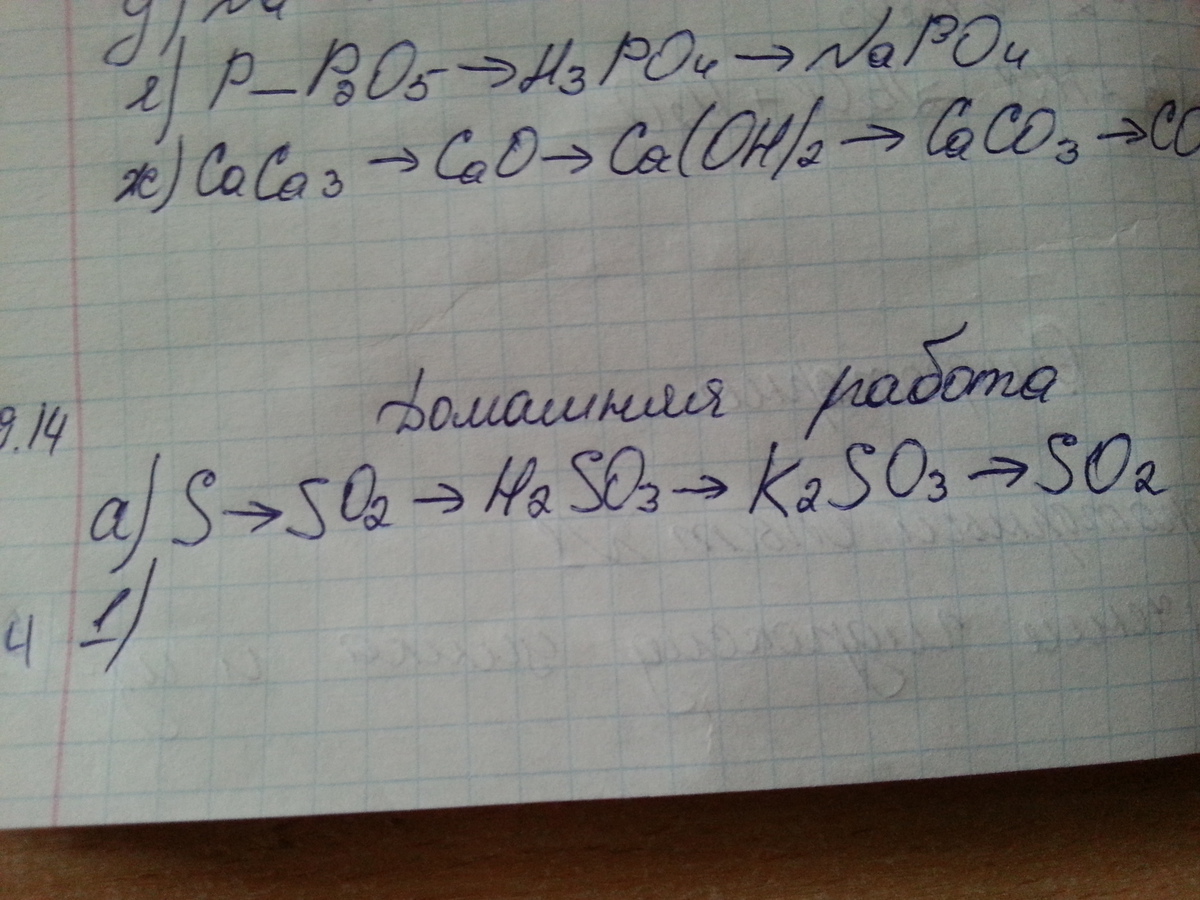 д) Na
е) P – P2O5 → H3PO4 → NaPO4
ж) CaCa3 → CaO → Ca(OH)2 → CaCO3 → CO
9.14 Домашняя работа
а) S → SO2 → H2SO3 → K2SO3 → SO2
4 1)